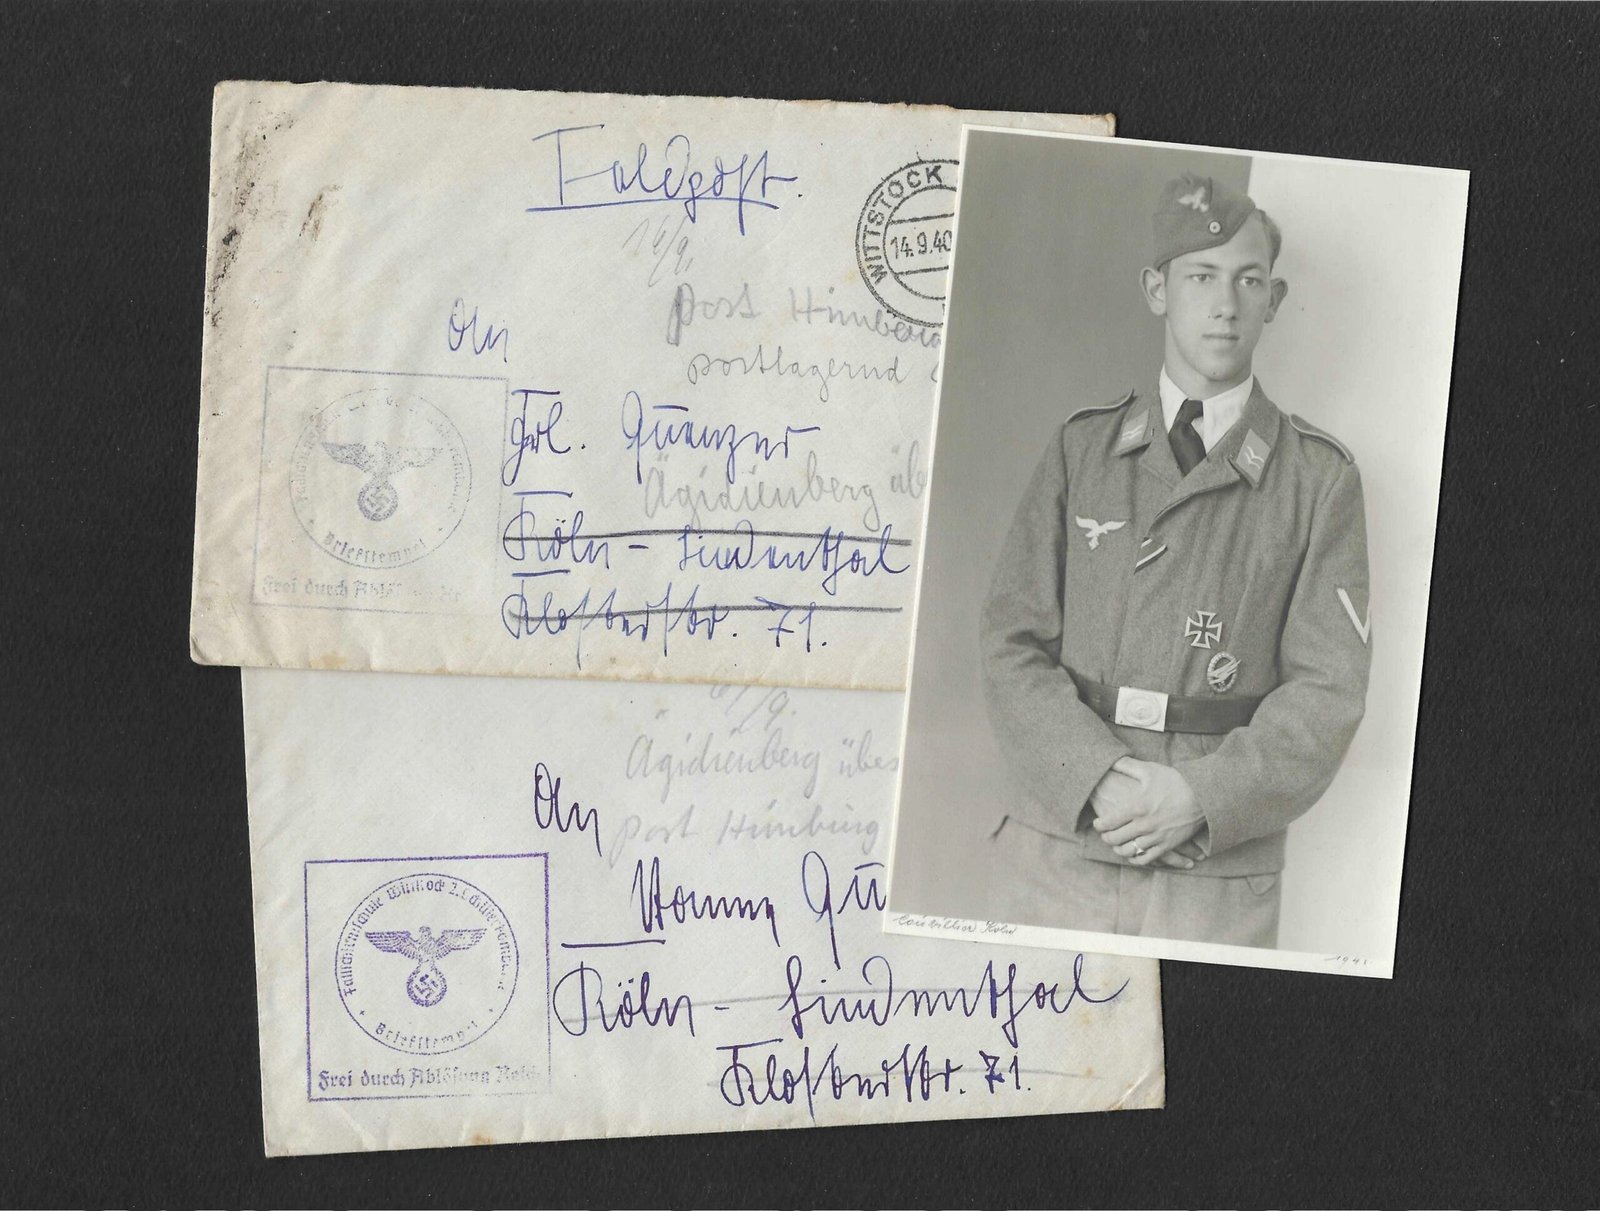 Feldpost.
WITTSTOCK
14.9.40
16/9.
Post Himberg
postlagernd
An
Frl. Quenzer
Ägidienberg üb
Köln - Lindenthal
Klosterstr. 71.
Briefstempel
Frei durch Ablös
/9.
Ägidienberg über
post Himburg
An
Hanny Qu
Köln - Lindenthal
Klosterstr. 71.
Fallschirmschule Wittstock
Briefstempel
Frei durch Ablösung Reich
Köln
1941